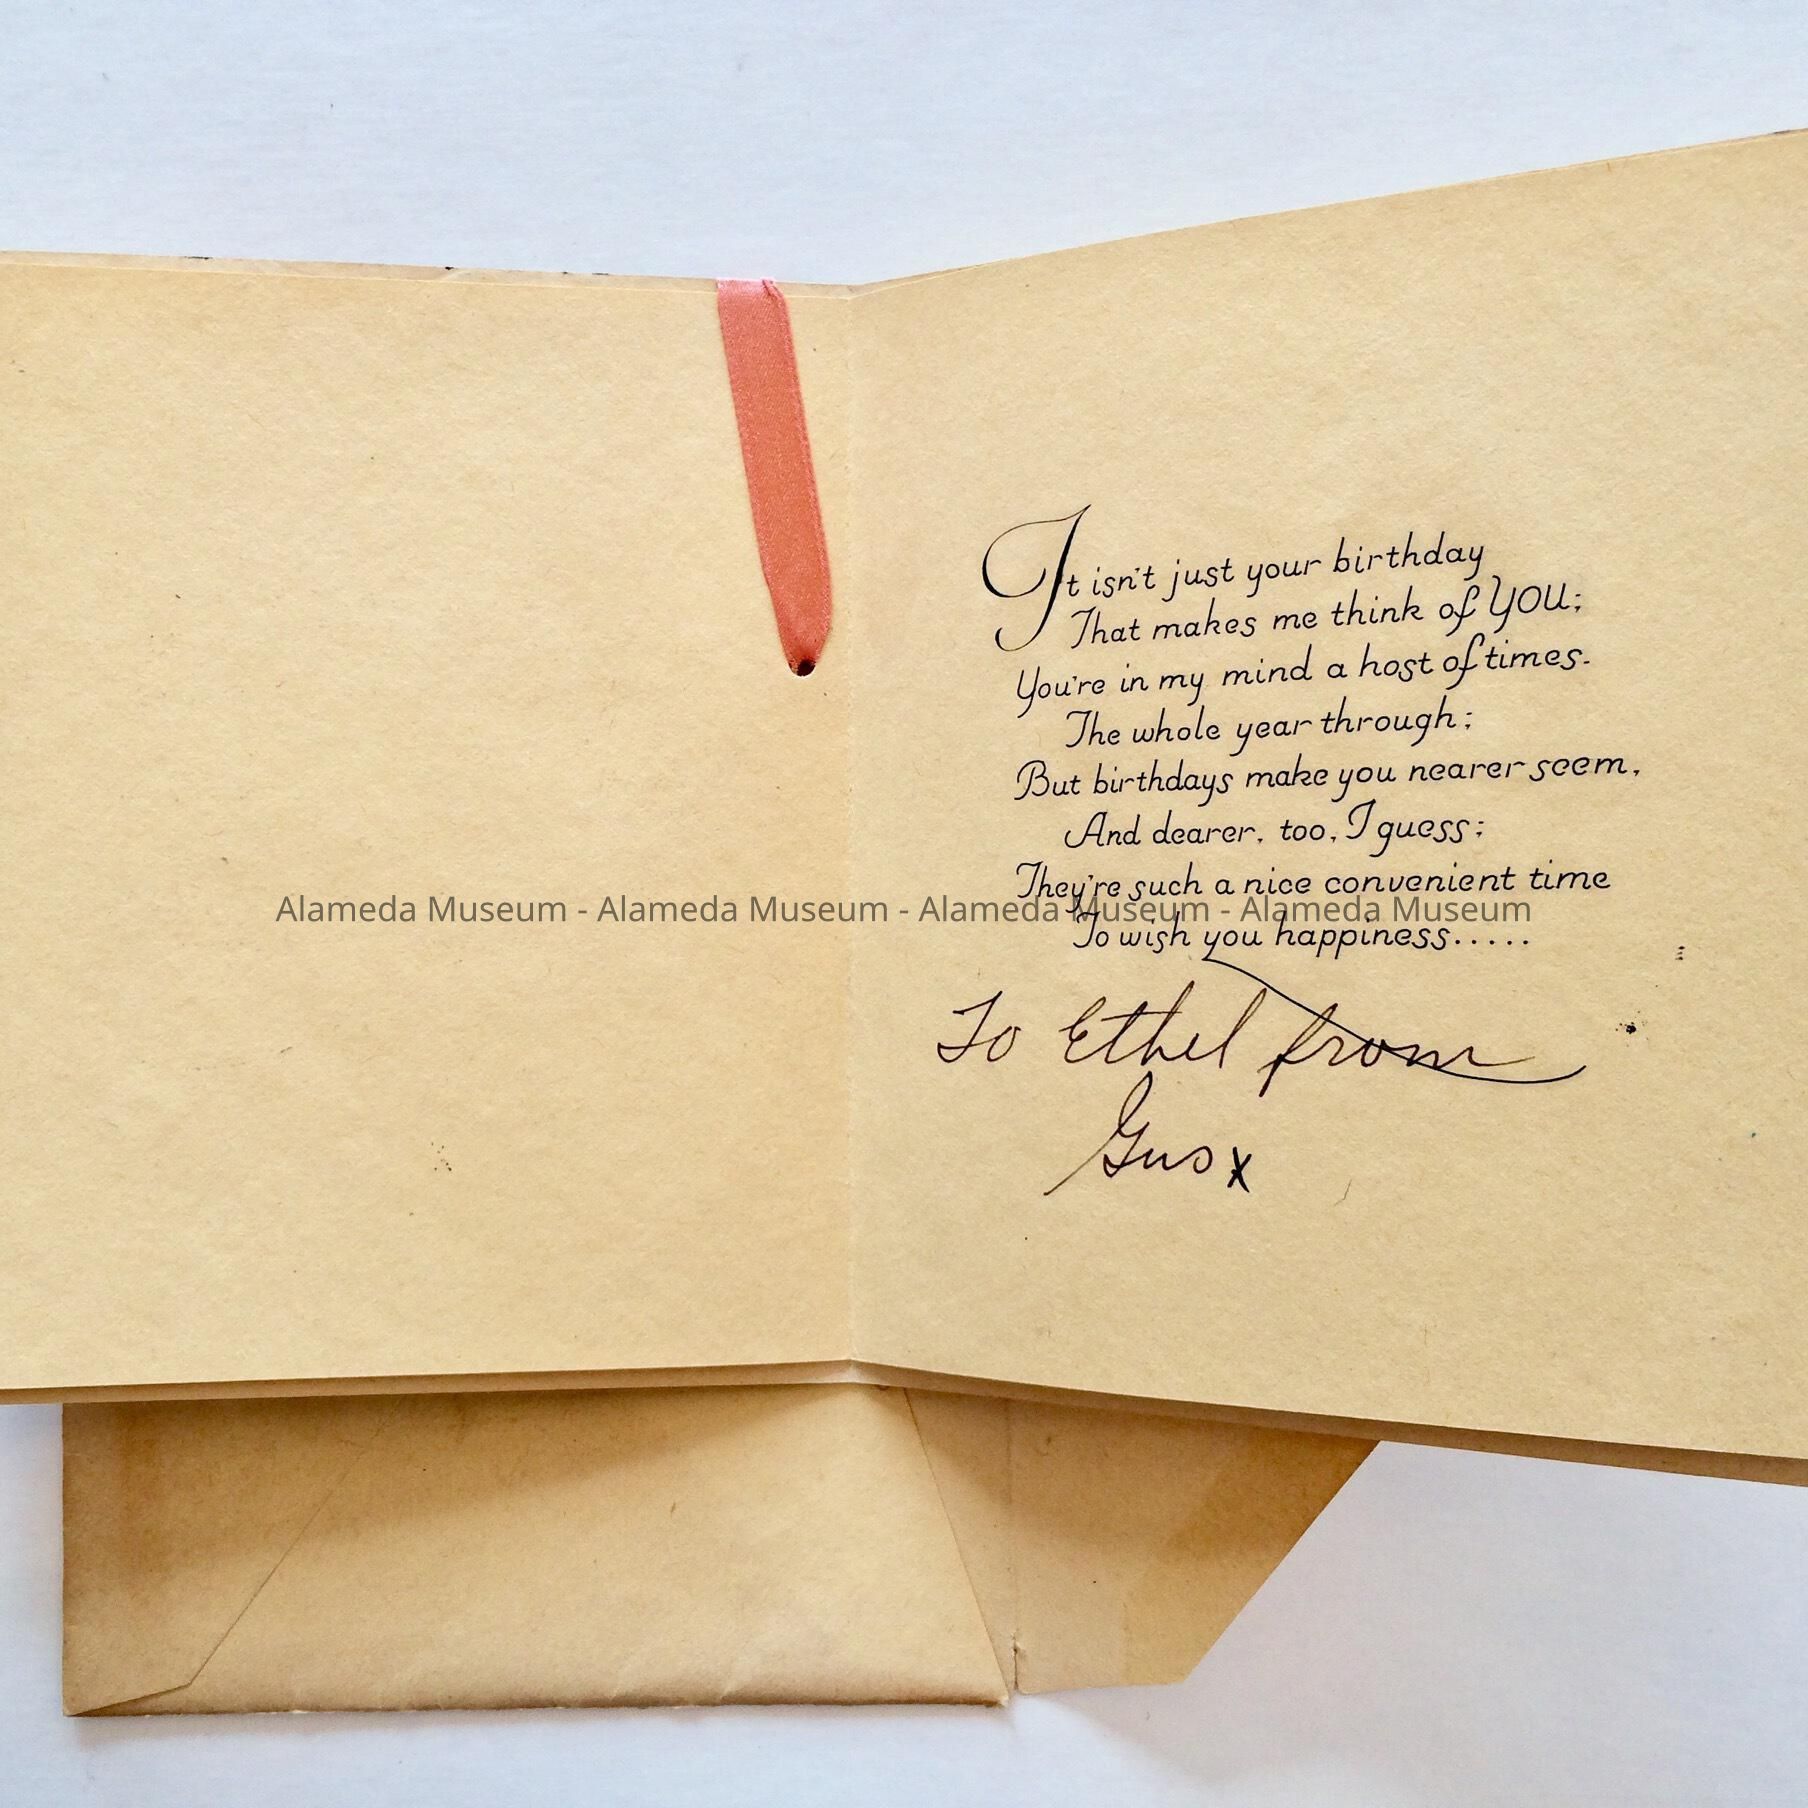 It isn't just your birthday
That makes me think of YOU;
You're in my mind a host of times-
The whole year through;
But birthdays make you nearer seem,
And dearer, too, I guess;
They're such a nice convenient time
Alameda Museum - Alameda Museum - Alameda Museum - Alameda Museum
To wish you happiness.....
To Ethel from
Gus x